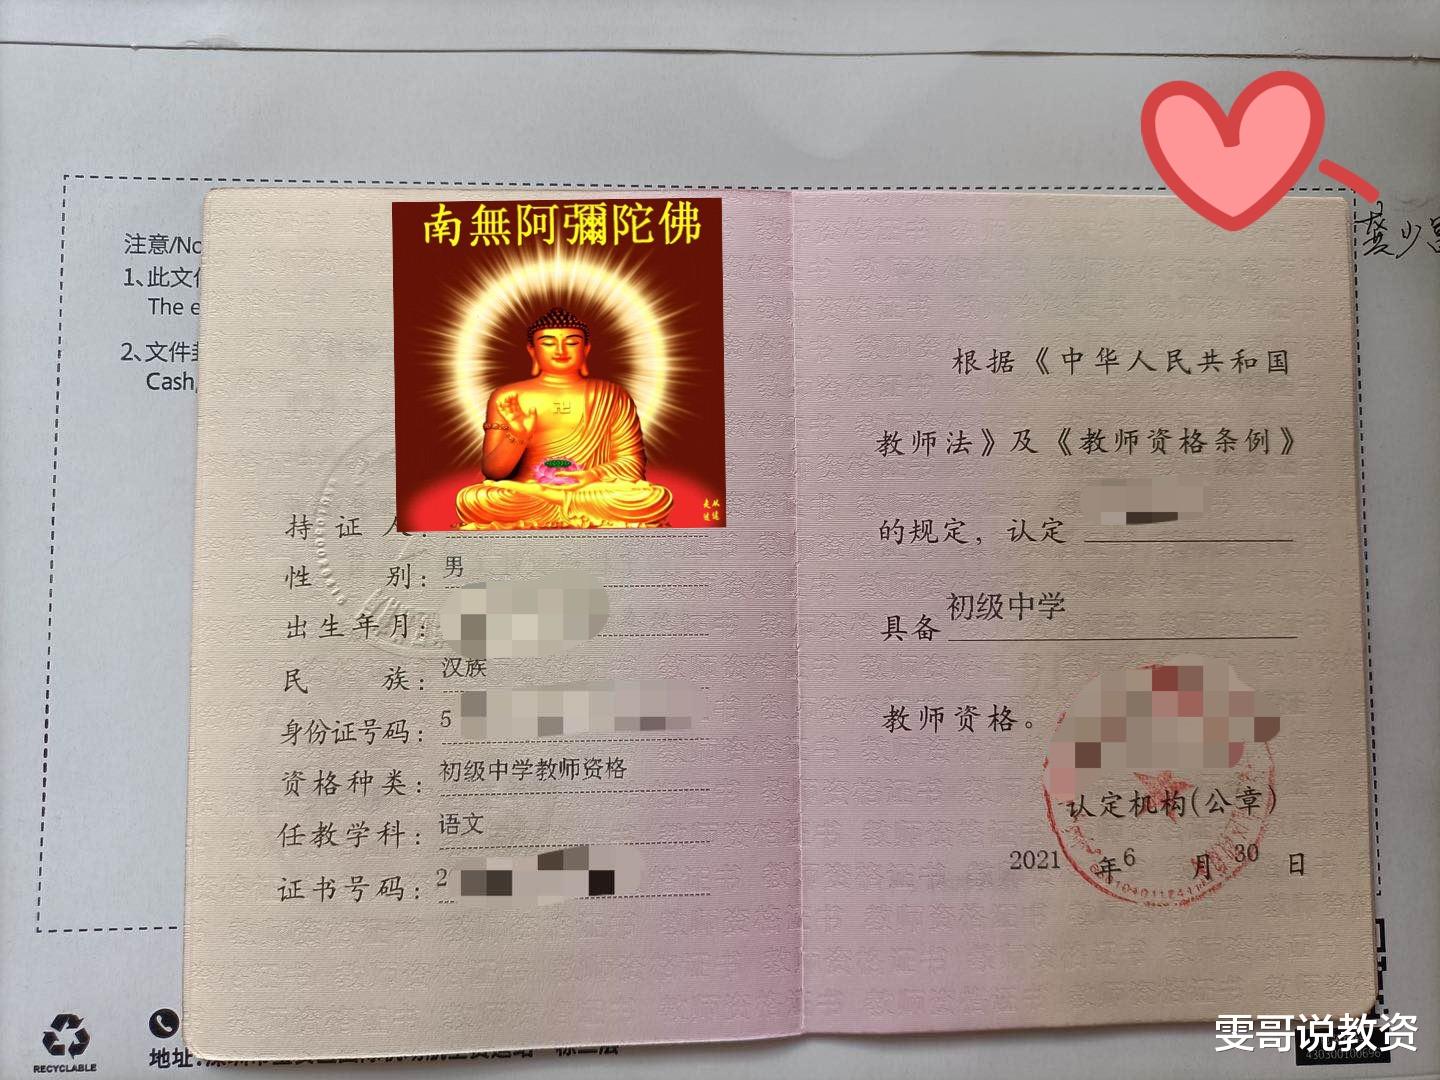 注意/No
1、此文件
The e
2、文件封
Cash,
南無阿彌陀佛
持证人:
性别:男
出生年月:
民族:汉族
身份证号码:5
资格种类:初级中学教师资格
任教学科:语文
证书号码:2
根据《中华人民共和国
教师法》及《教师资格条例》
的规定，认定
具备初级中学
教师资格。
认定机构(公章)
2021年6月30日
RECYCLABLE
地址:
雯哥说教资